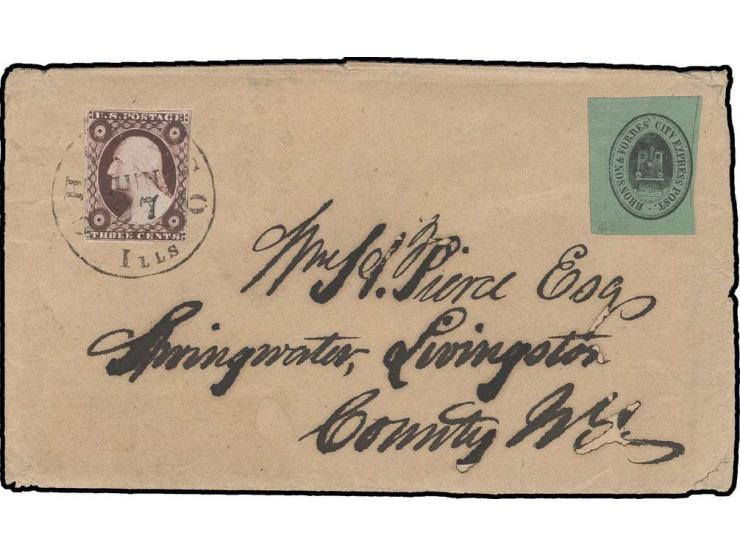 U.S. POSTAGE
THREE CENTS
JUN
7
ILLS
BRONSON & FORBES' CITY EXPRESS POST.
Wm H. Pierce Esq
Springwater, Livingston
County N.Y.